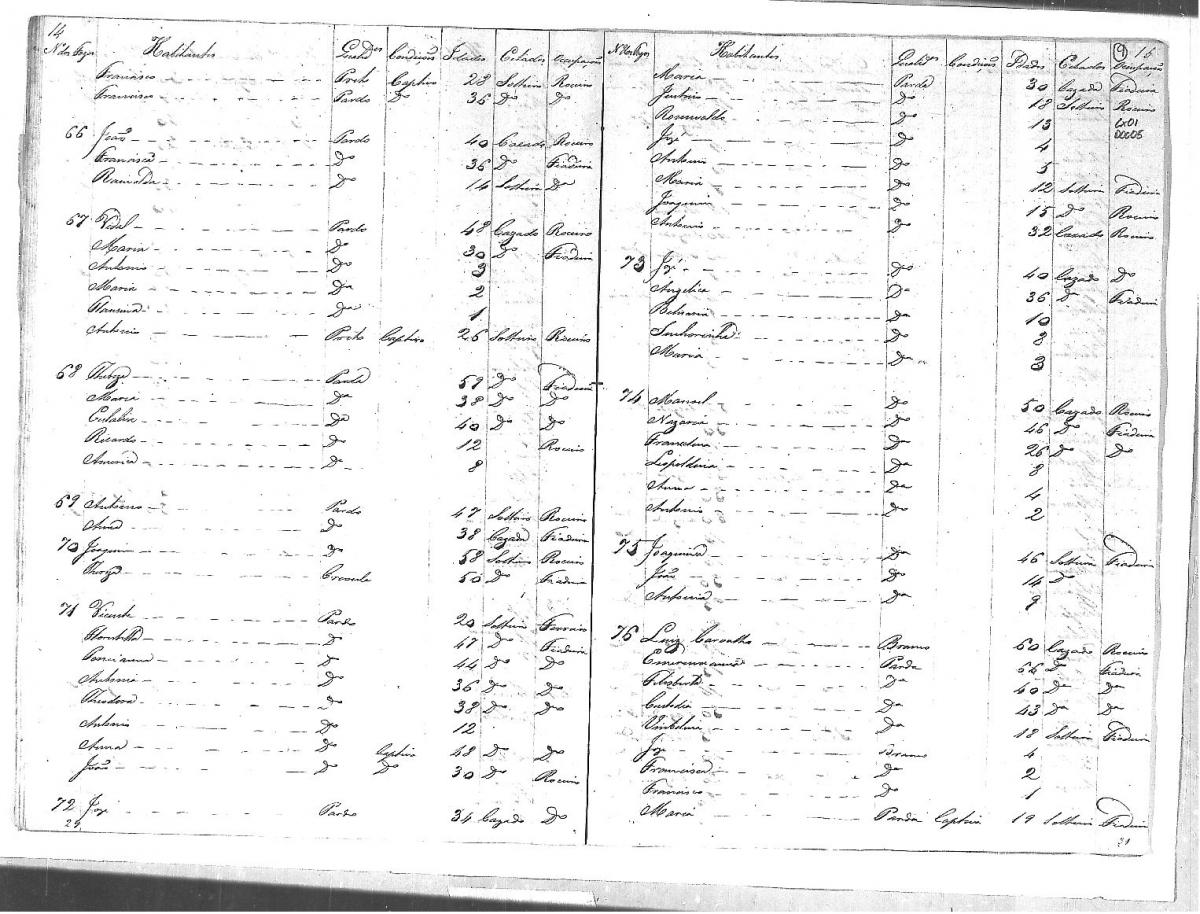 14
N.dos Fogos Habitantes Qualid.des Condiçoẽs Idades Estados Ocupação
Francisco Preto Captivo 28 Solteiro Roceiro
Francisco Pardo Do 36 Do Do
66 João Pardo 40 Cazado Roceiro
Francisca Do 36 Do Fiadeira
Do 14 Solteira Da
67 Vidal Pardo 48 Cazado Roceiro
Maria Da 30 Do Fiadeira
Antonio Do 3
Maria Da 2
Da 1
Antonio Preto Captivo 26 Solteiro Roceiro
68 Parda 59 Do Fiadeira
Maria Da 38 Do Do
Do 40 Do Do
Ricardo Do 12 Roceiro
America Da 8
69 Pardo 47 Solteiro Roceiro
Anna Do 38 Cazada Fiadeira
70 Joaquim Do 58 Solteiro Roceiro
Thereza Creoula 50 Do Fiadeira
71 Vicente Pardo 20 Solteiro Ferreiro
Do 47 Do Fiadeira
Ponciana Do 44 Do Do
Antonia Do 36 Do Do
Theodora Do 38 Do Do
Antonio Do 12
Anna Do Captiva 48 Do Do
João Do Do 30 Do Roceiro
72 Joze Pardo 34 Cazado Do
29
9 15
N. dos Fogos Habitantes Qualid.es Condiçoẽs Idades Estados Ocupação
Maria Parda 30 Cazada Fiadeira
Do 18 Solteiro Roceiro
Do 13
Cx01
Doc05
Joze Do 4
Antonio Do 5
Maria Do 12 Solteira Fiadeira
Joaquim Do 15 Do Roceiro
Antonio Do 32 Cazado Roceiro
73 Joze Do 40 Cazado Do
Angelica Da 36 Do Fiadeira
Da 10
Senhorinha Do 8
Maria Da 3
74 Manoel Do 50 Cazado Roceiro
Nazaria Do 46 Do Fiadeira
Francelina Do 26 Do Do
Leopoldina Da 8
Anna Da 4
Antonio Do 2
75 Joaquina Da 46 Solteira Fiadeira
João Do 14 Do
Antonia Da 9
76 Luiz Carvalho Branco 60 Cazado Roceiro
Emerenciana Parda 66 Do Fiadeira
Felisberta Da 40 Da Da
Custodia Da 43 Da Da
Da 18 Solteira Fiadeira
Joze Branco 4
Francisca Da 2
Francisco Do 1
Maria Parda Captiva 19 Solteira Fiadeira
31